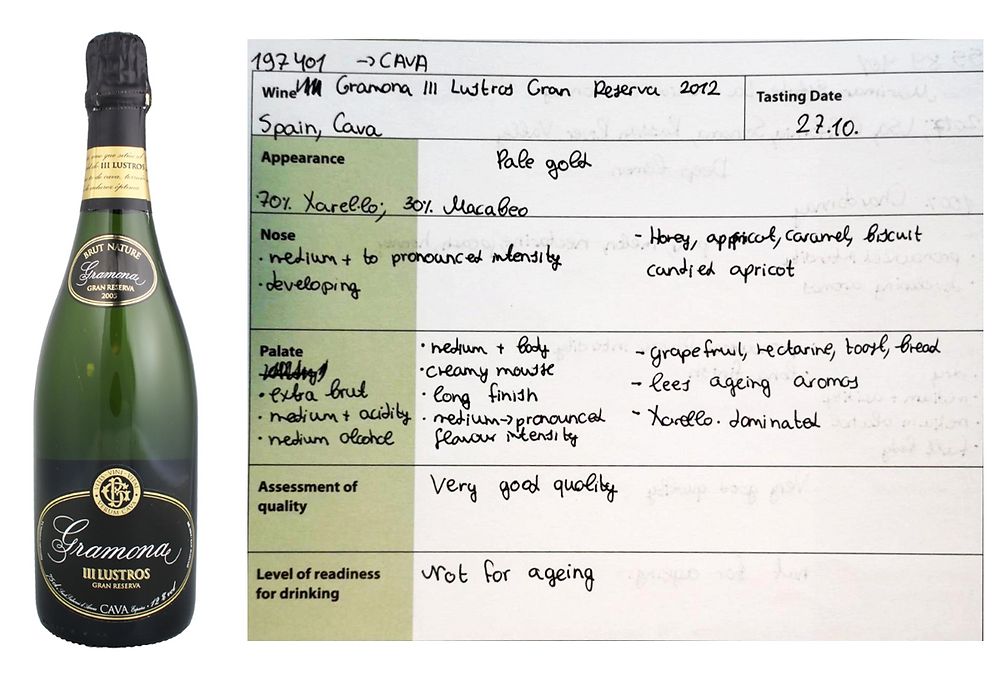 III LUSTROS
BRUT NATURE
Gramona
GRAN RESERVA
Gramona
III LUSTROS
GRAN RESERVA
CAVA
197401 → CAVA
Wine Gramona III Lustros Gran Reserva 2012
Spain, Cava
Tasting Date
27.10.
Appearance
Pale gold
70% Xarel·lo; 30% Macabeo
Nose
• medium + to pronounced intensity
• developing
- Honey, appricot, caramel, biscuit
candied apricot
Palate
• extra brut
• medium + acidity
• medium alcohol
• medium + body
• creamy mousse
• long finish
• medium → pronounced
flavour intensity
- grapefruit, nectarine, toast, bread
- lees ageing aromas
- Xarello. dominated
Assessment of
quality
Very good quality
Level of readiness
for drinking
Not for ageing